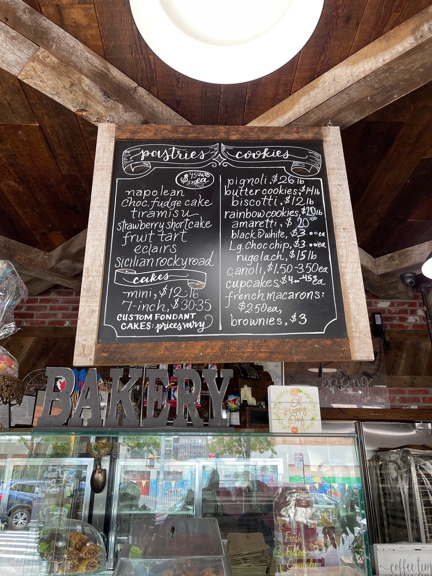 pastries
napolean
choc. fudge cake
tiramisu
strawberry shortcake
fruit tart
eclairs
sicilian rocky road
cakes
mini, $12 lb
7-inch, $30-35
CUSTOM FONDANT
CAKES: prices vary
cookies
pignoli, $26 lb
butter cookies, $14 lb
biscotti, $12 lb
rainbow cookies, $20 lb
amaretti, $20
black & white, $3
Lg. choc chip, $3
rugelach, $15 lb
canoli, $1.50-3.50 ea
cupcakes
french macarons:
$2.50 ea,
brownies, $3
BAKERY
Happy
Fresh
coffee